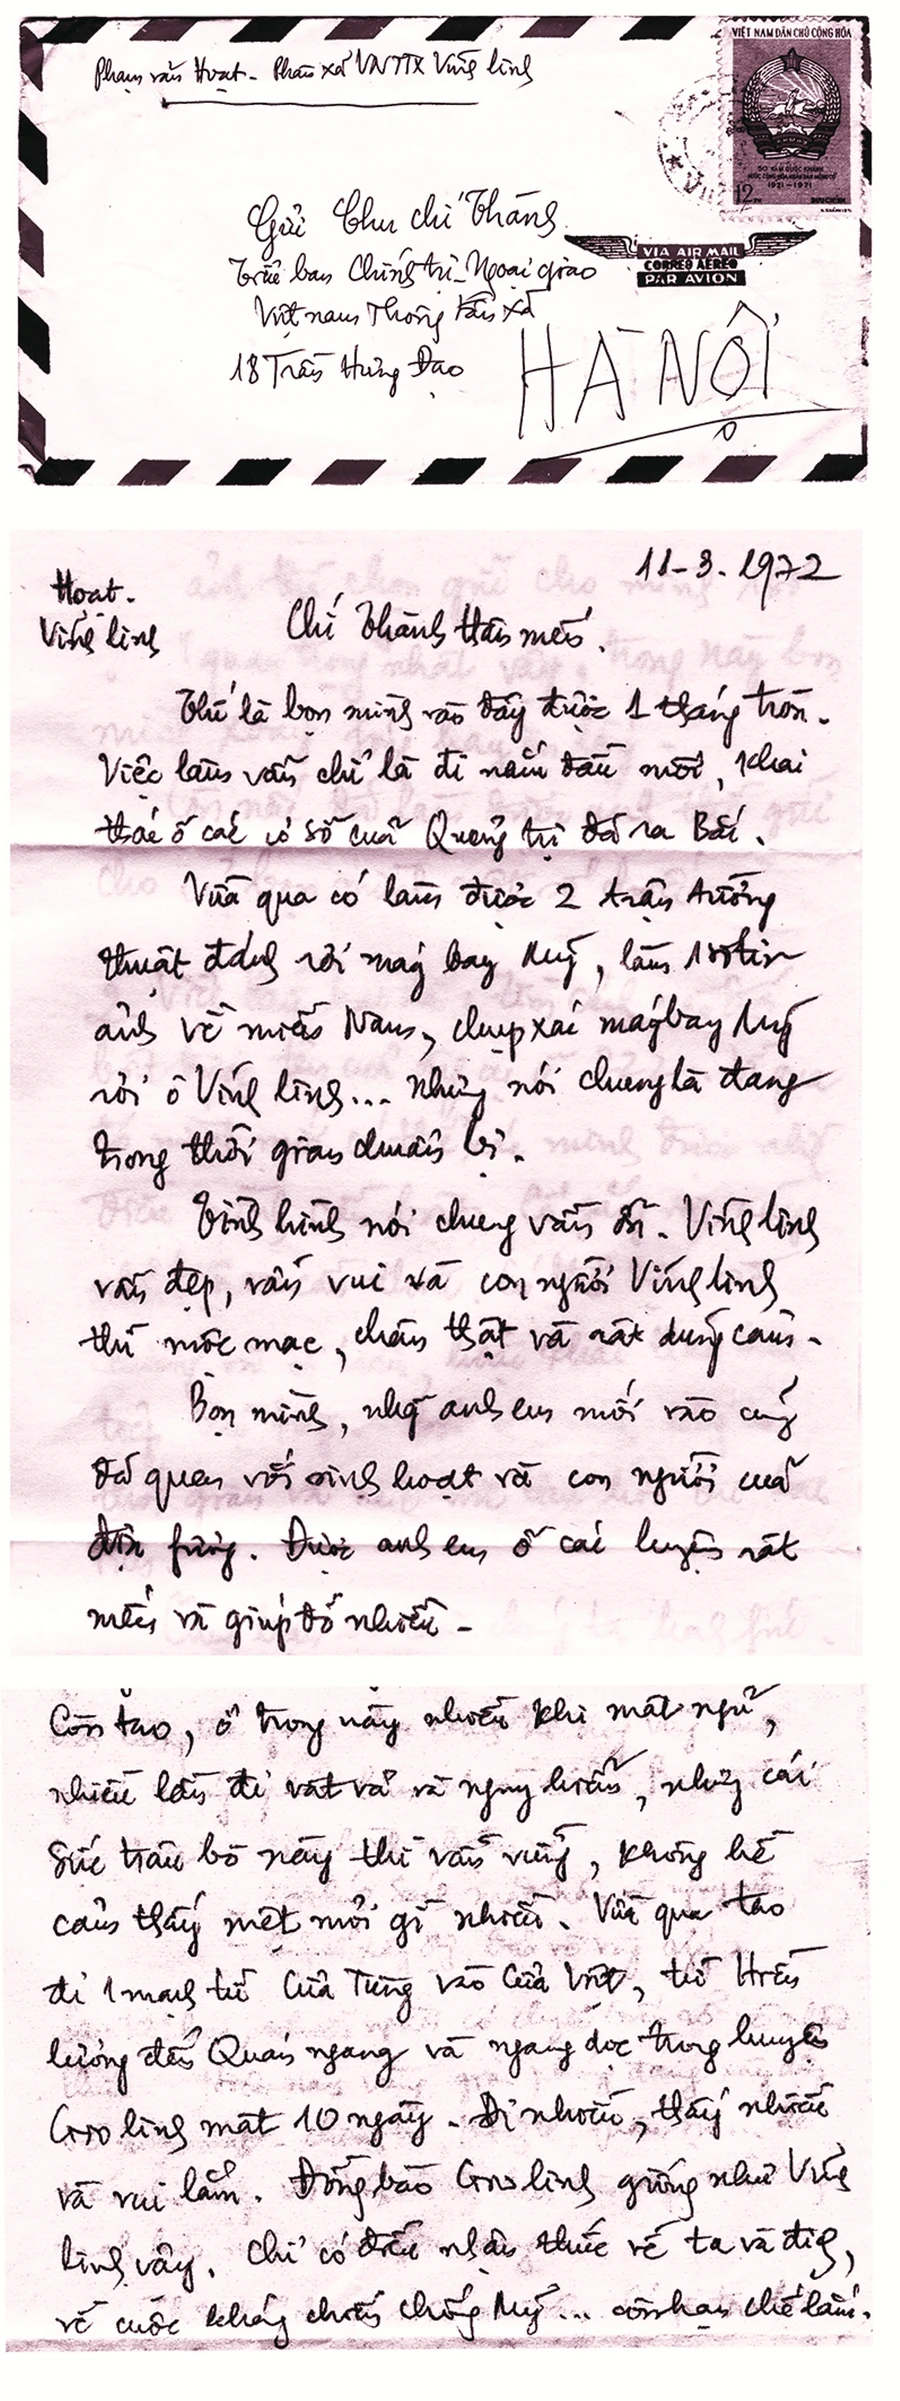 Phạm văn Hoạt - Phân xã VNTTX Vĩnh linh
VIỆT NAM DÂN CHỦ CỘNG HÒA
50 NĂM QUỐC KHÁNH
NƯỚC CỘNG HÒA NHÂN DÂN MÔNG CỔ
1921-1971
12 xu
BƯU CHÍNH
Gửi Chu chí Thành
Tiểu ban Chính trị - Ngoại giao
Việt nam Thông Tấn Xã
18 Trần Hưng Đạo
HÀ NỘI
VIA AIR MAIL
CORREO AEREO
PAR AVION
11-3-1972
Hoạt.
Vĩnh linh
Chí Thành thân mến.
Thế là bọn mình vào đây được 1 tháng tròn.
Việc làm vẫn chỉ là đi nắm đầu mối, khai
thác ở các cơ sở của Quảng trị đã ra Bắc.
Vừa qua có làm được 2 trận tường
thuật đánh rơi máy bay Mỹ, làm 1 số tin
ảnh về miền Nam, chụp xác máy bay Mỹ
rơi ở Vĩnh linh... Nhưng nói chung là đang
trong thời gian chuẩn bị.
Tình hình nói chung vẫn ổn. Vĩnh linh
vẫn đẹp, vẫn vui và con người Vĩnh linh
thì mộc mạc, chân thật và rất dũng cảm.
Bọn mình, những anh em mới vào cũng
đã quen với sinh hoạt và con người của
địa fương. Được anh em ở các huyện rất
mến và giúp đỡ nhiều -
Còn tao, ở trong này nhiều khi mất ngủ,
nhiều lần đi vất vả và nguy hiểm, nhưng cái
Sức trâu bò này thì vẫn vững, không hề
cảm thấy mệt mỏi gì nhiều. Vừa qua tao
đi 1 mạch từ Cửa Tùng vào Cửa Việt, từ Hiền
lương đến Quán ngang và ngang dọc trong huyện
Gio linh mất 10 ngày. Đi nhiều, thấy nhiều
và vui lắm. Đồng bào Gio linh giống như Vĩnh
linh vậy. Chỉ có điều nhận thức về ta và địch,
về cuộc kháng chiến chống Mỹ... còn hạn chế lắm.